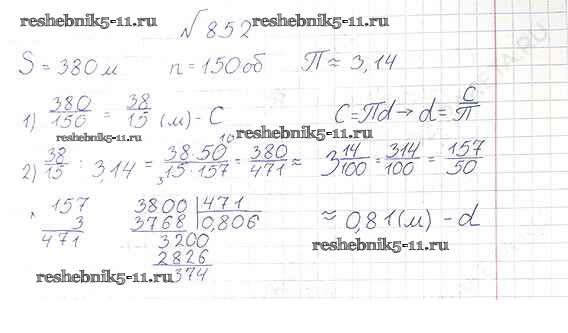 reshebnik5-11.ru №852 reshebnik5-11.ru
S = 380 м n = 150 об П ≈ 3,14
1) 380/150 = 38/15 (м) - C C = Пd → d = C/П
reshebnik5-11.ru reshebnik5-11.ru
2) 38/15 : 3,14 = 38·50/15·157 = 380/471 ≈ 3 14/100 = 314/100 = 157/50
10
3
× 157 3800 | 471
3 3768 | 0,806 ≈ 0,81 (м) - d
471 3200
reshebnik5-11.ru
2826
reshebnik5-11.ru 374